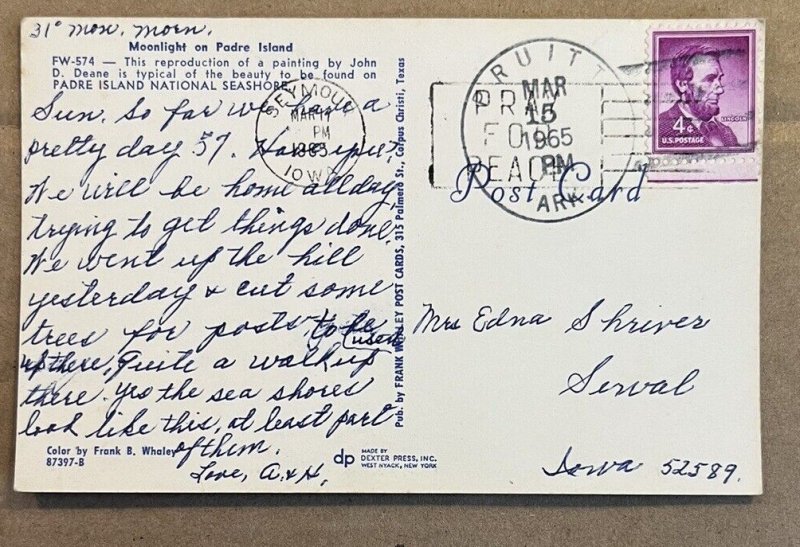 31° Mon. Morn.
Moonlight on Padre Island
FW-574 — This reproduction of a painting by John
D. Deane is typical of the beauty to be found on
PADRE ISLAND NATIONAL SEASHORE.
Sun. so far we have a
pretty day 57. How you?
We will be home all day,
trying to get things done.
We went up the hill
yesterday & cut some
trees for posts, to be
used
up there, Quite a walk up
there. Yes the sea shores
look like this, at least part
of them.
Love, A & H.
Color by Frank B. Whaley
87397-B
Pub. by FRANK WHALEY POST CARDS, 315 Palmero St., Corpus Christi, Texas
dp
MADE BY
DEXTER PRESS, INC.
WEST NYACK, NEW YORK
SEYMOUR
MAR 17
PM
1965
IOWA
PRUITT
MAR
15
1965
PM
ARK
PRAY
FOR
PEACE
LINCOLN
4¢
U.S. POSTAGE
Post Card
Mrs Edna Shriver
Serval
Iowa 52589.